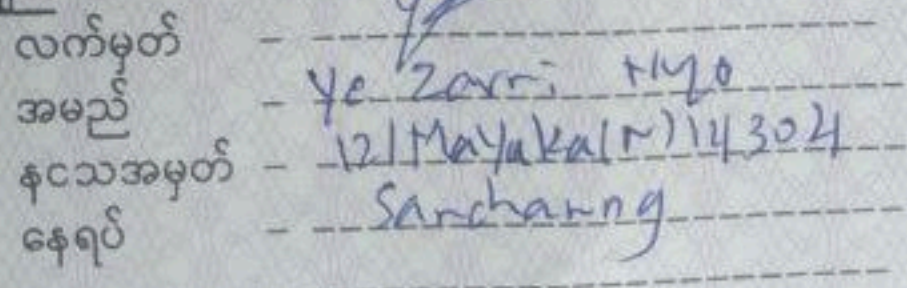 လက်မှတ် -
အမည် - Ye Zarri Hlyo
နငသအမှတ် - 12/MaYaKa(N)14304
နေရပ် - Sanchanng